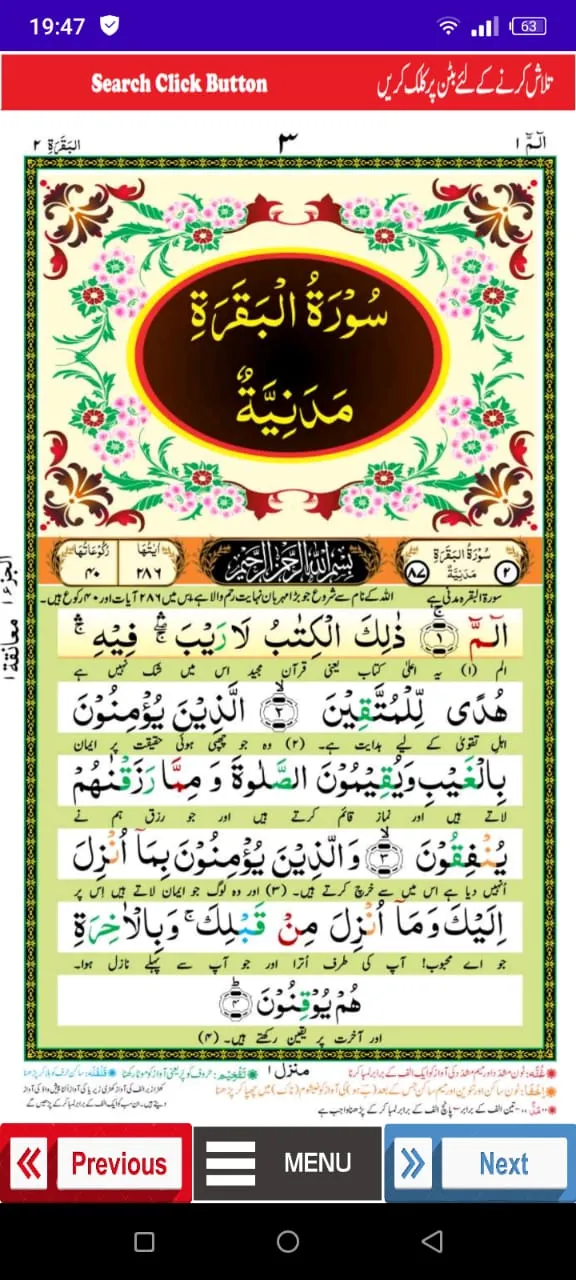 19:47
63
Search Click Button
تلاش کرنے کے لئے بٹن پر کلک کریں
الٓمّٓ ١
٣
البَقَرَة ٢
سُوْرَةُ الْبَقَرَةِ
مَدَنِيَّةٌ
٢
سُوْرَةُ الْبَقَرَةِ
مَدَنِيَّةٌ
٨٧
بِسْمِ اللّٰهِ الرَّحْمٰنِ الرَّحِيْمِ
اٰيٰتُهَا
٢٨٦
رُكُوْعَاتُهَا
٤٠
سورۃ البقرہ مدنی ہے
اللہ کے نام سے شروع جو بڑا مہربان نہایت رحم والا ہے
اس میں ۲۸۶ آیات اور ۴۰ رکوع ہیں۔
الجزء ١
معانقة ١
الٓمّٓ ۚ﴿١﴾ ذٰلِكَ الْكِتٰبُ لَا رَيْبَ ۛۖ فِيْهِ ۛۚ
الم (۱) یہ اعلیٰ کتاب یعنی قرآن مجید اس میں شک نہیں ہے
هُدًى لِّلْمُتَّقِيْنَ ۙ﴿٢﴾ الَّذِيْنَ يُؤْمِنُوْنَ
اہلِ تقویٰ کے لیے ہدایت ہے۔ (۲) وہ جو چھپی ہوئی حقیقت پر ایمان
بِالْغَيْبِ وَيُقِيْمُوْنَ الصَّلٰوةَ وَ مِمَّا رَزَقْنٰهُمْ
لاتے ہیں اور نماز قائم کرتے ہیں اور جو رزق ہم نے
يُنْفِقُوْنَ ۙ﴿٣﴾ وَالَّذِيْنَ يُؤْمِنُوْنَ بِمَاۤ اُنْزِلَ
اُنہیں دیا ہے اس میں سے خرچ کرتے ہیں۔ (۳) اور وہ لوگ جو ایمان لاتے ہیں اِس پر
اِلَيْكَ وَمَاۤ اُنْزِلَ مِنْ قَبْلِكَ ۚ وَبِالْاٰخِرَةِ
جو اے محبوب! آپ کی طرف اُترا اور جو آپ سے پہلے نازل ہوا۔
هُمْ يُوْقِنُوْنَ ؕ﴿٤﴾
اور آخرت پر یقین رکھتے ہیں۔ (۴)
منزل ١
Previous
MENU
Next